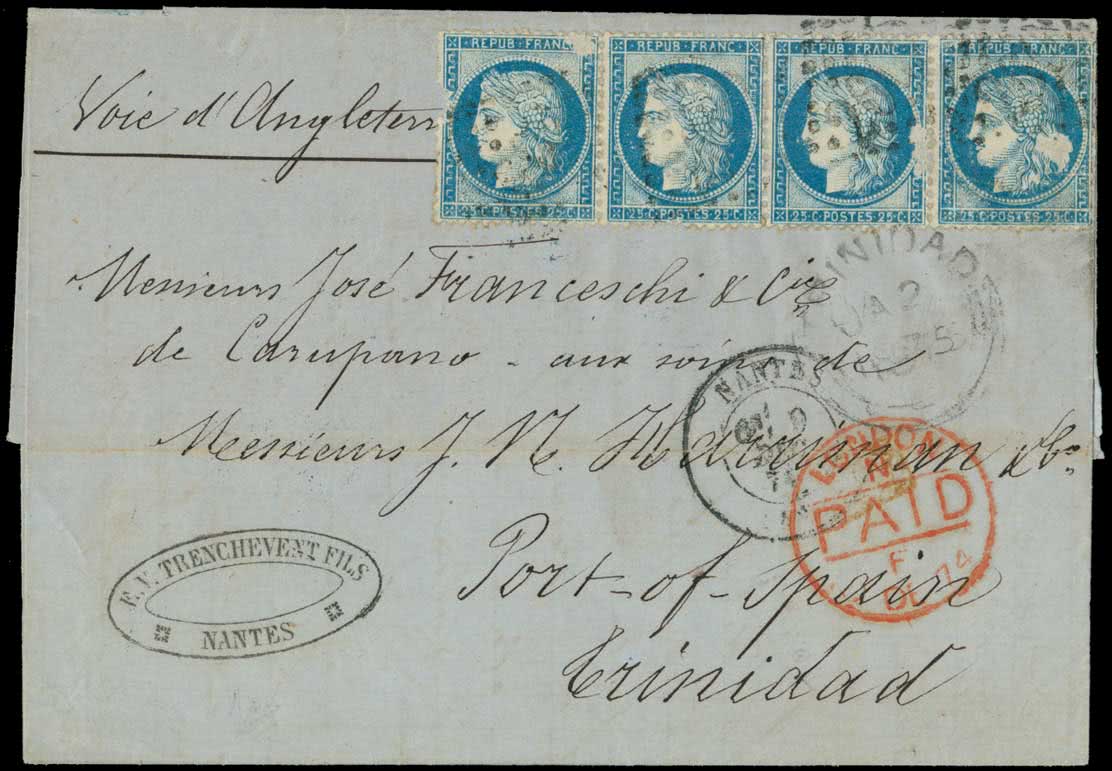 REPUB·FRANC· REPUB·FRANC· REPUB·FRANC· REPUB·FRANC·
25·C·POSTES·25·C· 25·C·POSTES·25·C· 25·C·POSTES·25·C· 25·C·POSTES·25·C·
Voie d'Angleterr
TRINIDAD
JA 2
75
Messieurs José Franceschi & Cie
de Carupano - aux soins de
NANTES
Messieurs J. N. & Co
LONDON
PAID
F
DE 74
E. V. TRENCHEVENT FILS
NANTES
Port-of-Spain
Trinidad